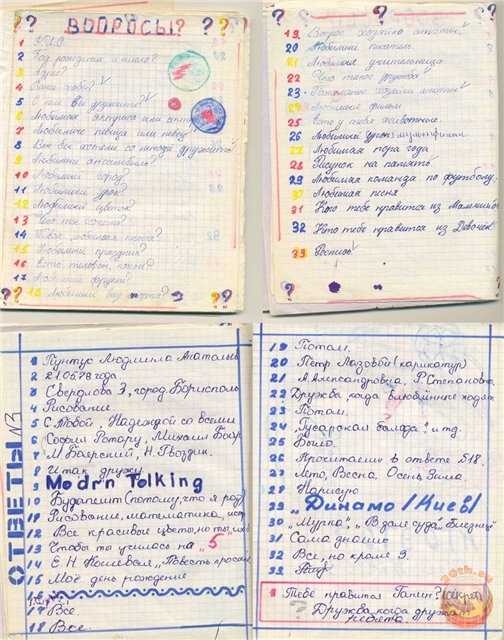 ? ВОПРОСЫ? ?
1 Ф.И.О
2 Год рождения и число?
3 Адрес?
4 Ваше хобби?
5 С кем Вы дружите?
6 Любимая актриса или актёр
7 Любимые певица или певец
8 Вы бы хотели со мной дружить?
9 Любимый ансамбль?
10 Любимый город?
11 Любимый урок?
12 Любимые цветы?
13 Что ты хочешь?
14 Твоя любимая
15 Любимый праздник?
16 Есть телефон,
17 Любимый фрукт?
18 Любимый вид спорта?
19 Вопрос хозяйки анкеты
20 Любимый писатель
21 Любимая учительница
22 Что такое дружба
23 хозяйки анкеты
24 Любимый фильм
25 Есть у тебя
26 Любимый мультфильм
27 Любимая пора года
28 Рисунок на память
29 Любимая команда по футболу
30 Любимая песня
31 Кого тебе нравится из Мальчиков
32 Кто тебе нравится из Девочек
33 Роспись
ОТВЕТЫ №3
1 Пунтус Людмила Анатольев
2 21.05.78 года
3 Свердлова 3, город Борисполь
4 Рисование
5 С Тобой, Надеждой со всеми
6 София Ротару, Михаил Бояр
7 М Боярский, Н. Гвоздик.
8 И так дружу.
9 Modrn Tolking
10 Будапешт (потому, что я род)
11 Рисование, математика, ист
12 Все красивые цветы, но
13 Чтобы ты училась на "5"
14 Е. Н Кошевая, "Повесть о
15 Моё день рождение
16
17 Все
18 Все.
19 Потом.
20 Пётр Глазовой (карикатур)
21 А. Александровна, Р. Степановна
22 Дружба, когда влюблённые ходят
23 Потом.
24 "Гусарская балада" и тд.
25 Было
26 Прочитаешь в ответе 518.
27 Лето, Весна. Осень, Зима
28 Нарисую
29 "Динамо" /Киев/
30 "Мурка", "В зале суда",
31 Сама знаешь
32 Все, но кроме Э.
33
Тебе нравится Балет? (секрет)
? Дружба, когда дружат
ребята